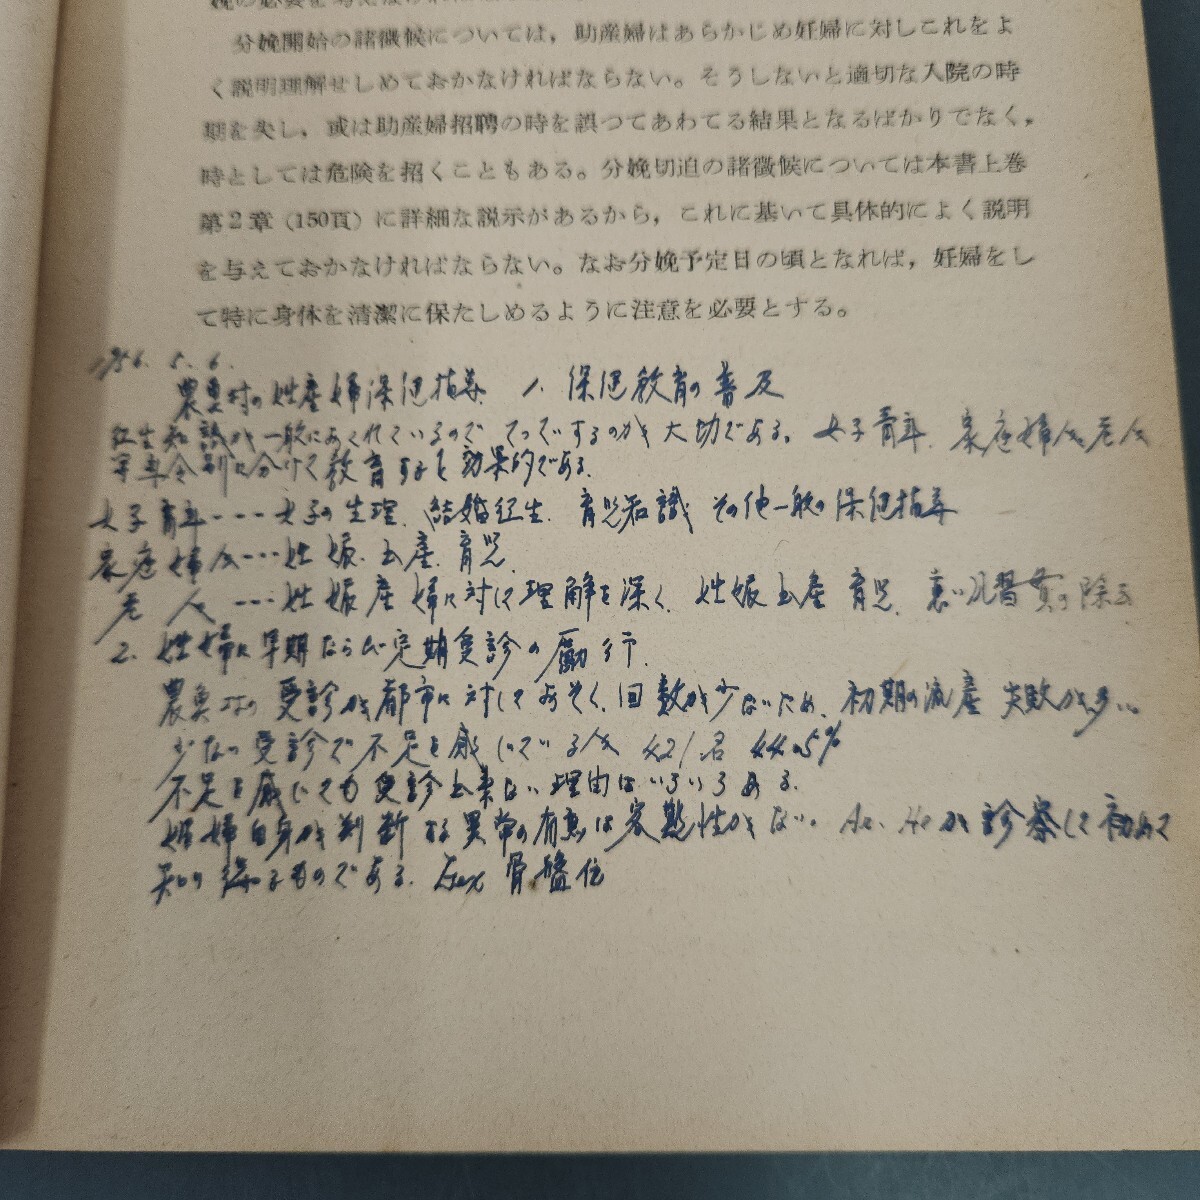 分娩開始の諸徴候については，助産婦はあらかじめ妊婦に対しこれをよ
く説明理解せしめておかなければならない。そうしないと適切な入院の時
期を失し，或は助産婦招聘の時を誤つてあわてる結果となるばかりでなく，
時としては危険を招くこともある。分娩切迫の諸徴候については本書上巻
第2章（150頁）に詳細な説示があるから，これに基いて具体的によく説明
を与えておかなければならない。なお分娩予定日の頃となれば，妊婦をし
て特に身体を清潔に保たしめるように注意を必要とする。
1956. 5. 6.
農魚村の妊産婦保健指導 1. 保健教育の普及
衛生知識が一般におくれているので するのが大切である。女子青年、家庭婦人老人
年令別に分けて教育すると効果的である。
女子青年----女子の生理、結婚衛生、育児知識 その他一般の保健指導
家庭婦人----妊娠、出産、育児
老人----妊娠産婦に対して理解を深く、妊娠出産育児、悪い習慣の除去
2. 妊婦に早期ならびに定期受診の励行
農魚村の受診が都市に対しておそく、回数が少ないため、初期の流産 失敗が多い
少ない受診で不足を感じている人 421名 44.5%
不足を感じても受診出来ない理由はいろいろある。
妊婦自身が判断する異常の有無は客観性がない。 が診察して初めて
知り得るものである。 骨盤位